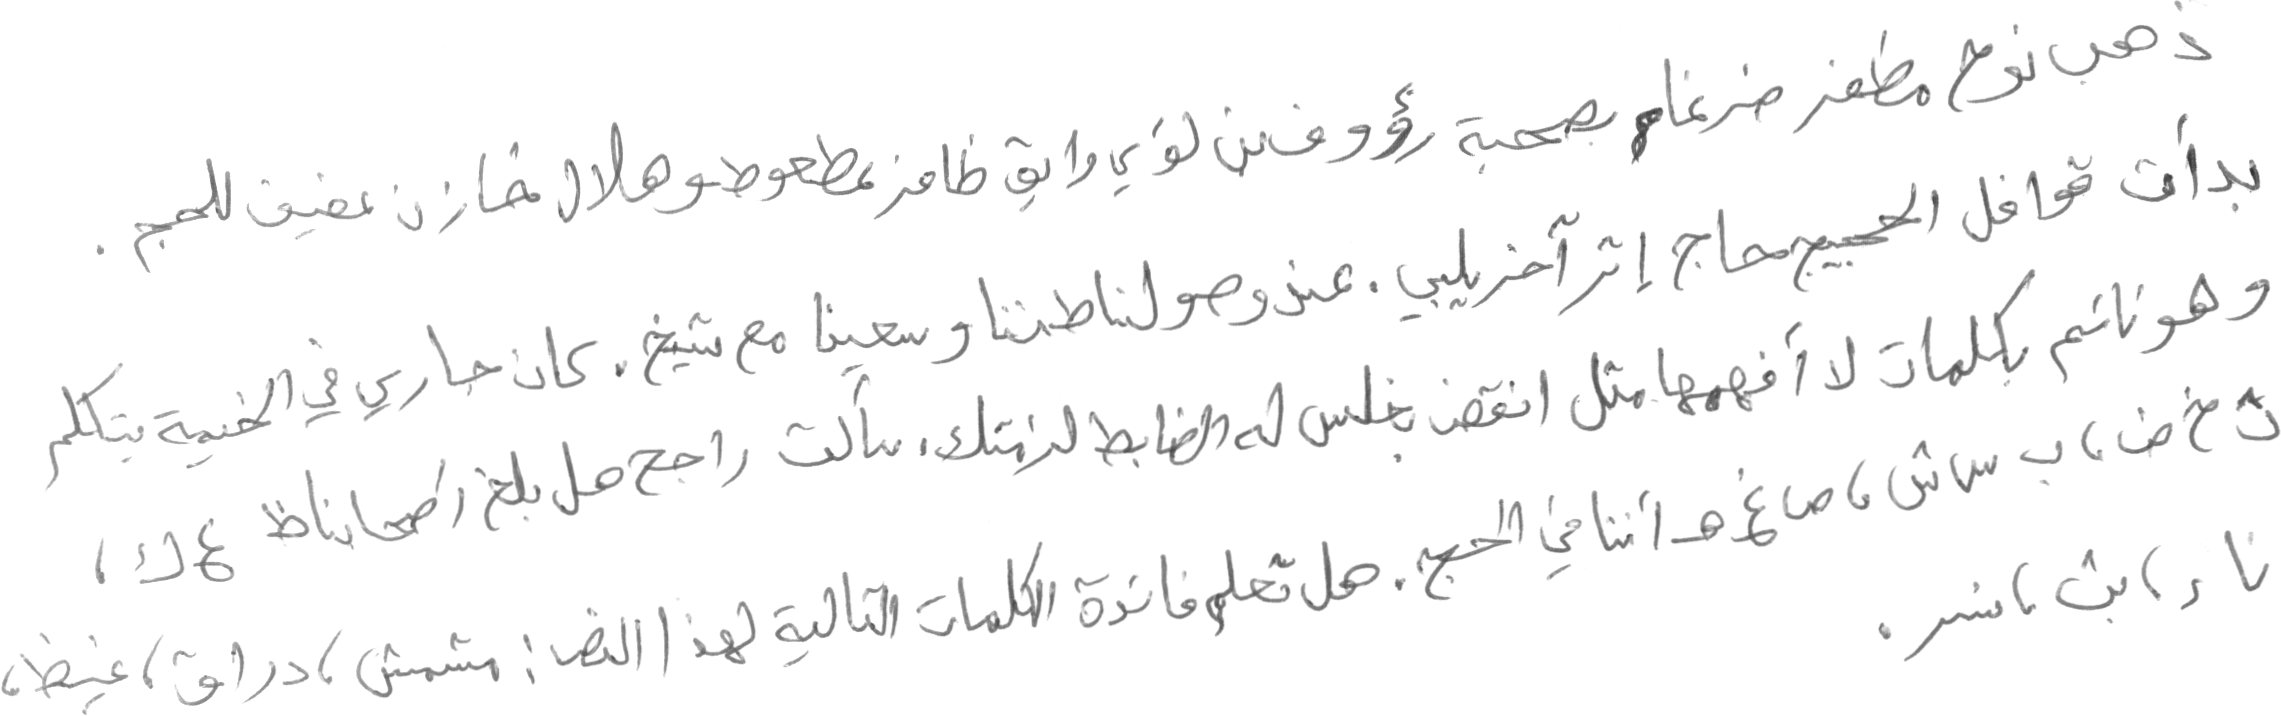 ذهب نوح مظفر ضرغام بصحبة رؤوف بن لؤي رايق ظافر عطعوط و هلال مخازن عفيف للحج .
بدأت قوافل الحجيج حاج إثر آخر يلبي . عند وصولنا طفنا و سعينا مع شيخ . كان جاري في الخيمة يتكلم
و هو نائم بكلمات لا أفهمها مثل انقض بخلس له الضابط لزمتك . سألت راجح هل بلغ أصحابنا ظ ع ك ،
ث خ ض ، ب س ش ، ص غ هـ أننا في الحج . هل تعلم فائدة الكلمات التالية لهذا النص : مشمش ، دراق ، غيظ ،
نا ر ، بث ، نسر .